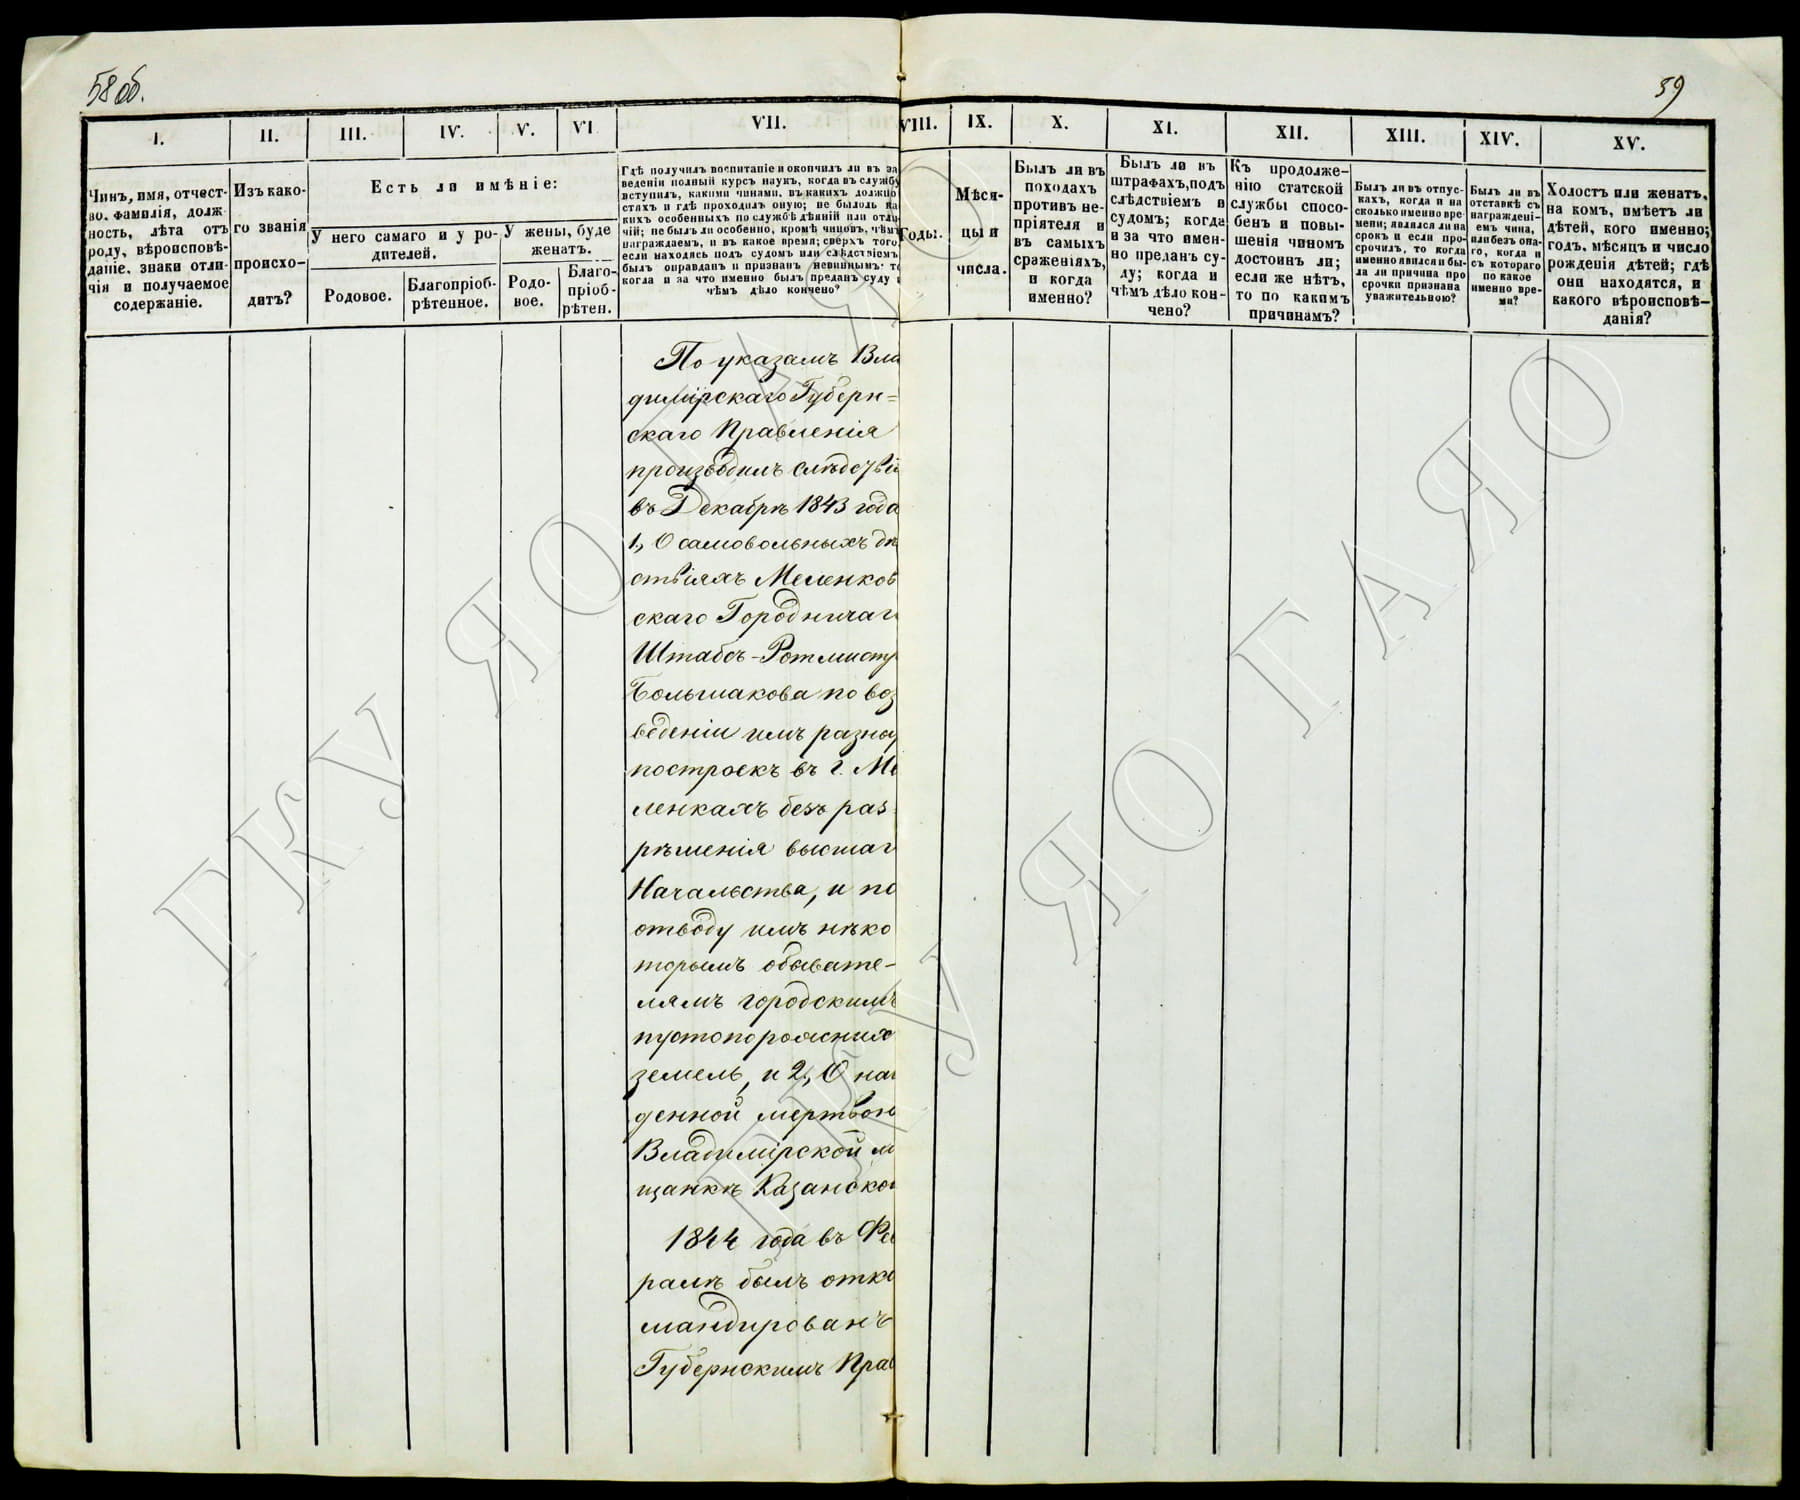 58 об.
59
I.
II.
III.
IV.
V.
VI
VII.
VIII.
IX.
X.
XI.
XII.
XIII.
XIV.
XV.
Чинъ, имя, отчест-
во, фамилія, долж-
ность, лѣта отъ
роду, вѣроисповѣ-
даніе, знаки отли-
чія и получаемое
содержаніе.
Изъ како-
го званія
происхо-
дитъ?
Есть ли имѣніе:
У него самаго и у ро-
дителей.
У жены, буде
женатъ.
Родовое.
Благопріоб-
рѣтенное.
Родо-
вое.
Благо-
пріоб-
рѣтен.
Гдѣ получилъ воспитаніе и окончилъ ли въ за
веденіи полный курсъ наукъ, когда въ службу
вступилъ, какими чинами, въ какихъ должно
стяхъ и гдѣ проходилъ оную; не было ль ка
кихъ особенныхъ по службѣ дѣяній или отли
чій; не былъ ли особенно, кромѣ чиновъ, чѣмъ
награждаемъ, и въ какое время; сверхъ того,
если находясь подъ судомъ или слѣдствіемъ
былъ оправданъ и признанъ невиннымъ: то
когда и за что именно былъ преданъ суду и
чѣмъ дѣло кончено?
Годы.
Мѣся-
цы и
числа.
Былъ ли въ
походахъ
противъ не-
пріятеля и
въ самыхъ
сраженіяхъ,
и когда
именно?
Былъ ли въ
штрафахъ, подъ
слѣдствіемъ и
судомъ; когда
и за что имен-
но преданъ су-
ду; когда и
чѣмъ дѣло кон-
чено?
Къ продолже-
нію статской
службы спосо-
бенъ и повы-
шенія чиномъ
достоинъ ли;
если же нѣтъ,
то по какимъ
причинамъ?
Былъ ли въ отпус-
кахъ, когда и на
сколько именно вре-
мени; являлся ли на
срокъ и если про-
срочилъ, то когда
именно явился и бы-
ла ли причина про
срочки признана
уважительною?
Былъ ли въ
отставкѣ съ
награждені-
емъ чина,
или безъ она-
го, когда и
съ котораго
по какое
именно вре-
мя?
Холостъ или женатъ,
на комъ, имѣетъ ли
дѣтей, кого именно;
годъ, мѣсяцъ и число
рожденія дѣтей; гдѣ
они находятся, и
какого вѣроисповѣ-
данія?
По указамъ Вла
димірскаго Губерн=
скаго Правленія
производилъ слѣдствія
въ Декабрѣ 1843 года
1, О самовольныхъ дѣ
ствіяхъ Меленков
скаго Городничаго
Штабсъ-Ротмистр
Большакова по воз
веденіи имъ разных
построекъ въ г. Ме
ленкахъ безъ раз
рѣшенія высшаг
Начальства, и по
отводу имъ нѣко
торымъ обывате-
лямъ городскимъ
пустопорожних
земель, и 2, О най
денной мертвою
Владимірской мѣ
щанкѣ Казанской
1844 года въ Фев
ралѣ былъ отко
мандированъ
Губернскимъ Прав
ГКУ ЯО ГАЯО
ГКУ ЯО ГАЯО